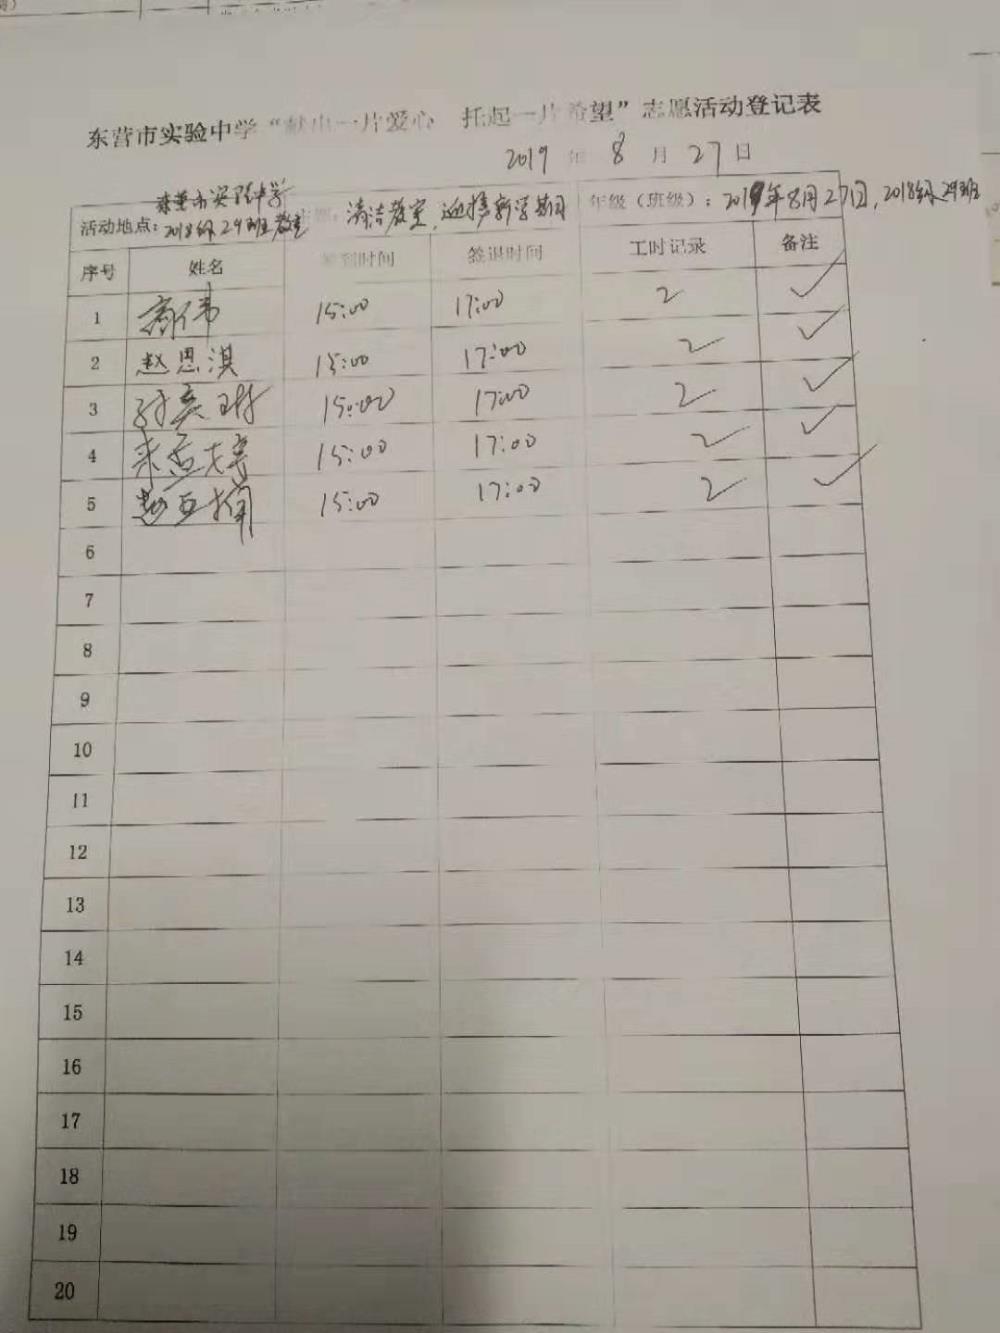 东营市实验中学“献出一片爱心 托起一片希望”志愿活动登记表
2019 年 8 月 27 日
东营市实验中学
活动地点：2018级29班教室 清洁教室，迎接新学期 年级（班级）：2019年8月27日，2018级29班
序号 姓名 签到时间 签退时间 工时记录 备注
1 高伟 15:00 17:00 2 ✓
2 赵思淇 15:00 17:00 2 ✓
3 15:00 17:00 2 ✓
4 15:00 17:00 2 ✓
5 15:00 17:00 2 ✓
6
7
8
9
10
11
12
13
14
15
16
17
18
19
20